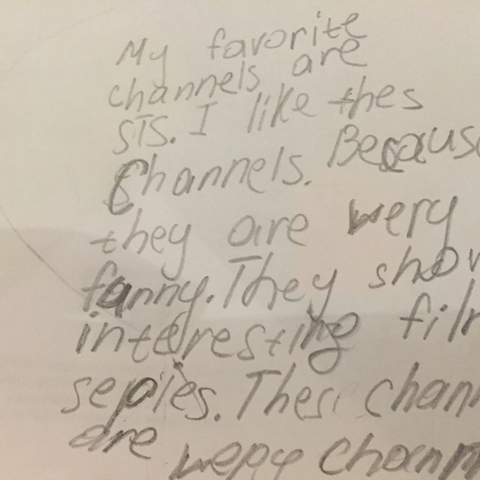 My favorite
channels are
STS. I like thes
Channels. Becaus
they are wery
fanny. They show
interesting fil
sepies. Thes chan
are wepy